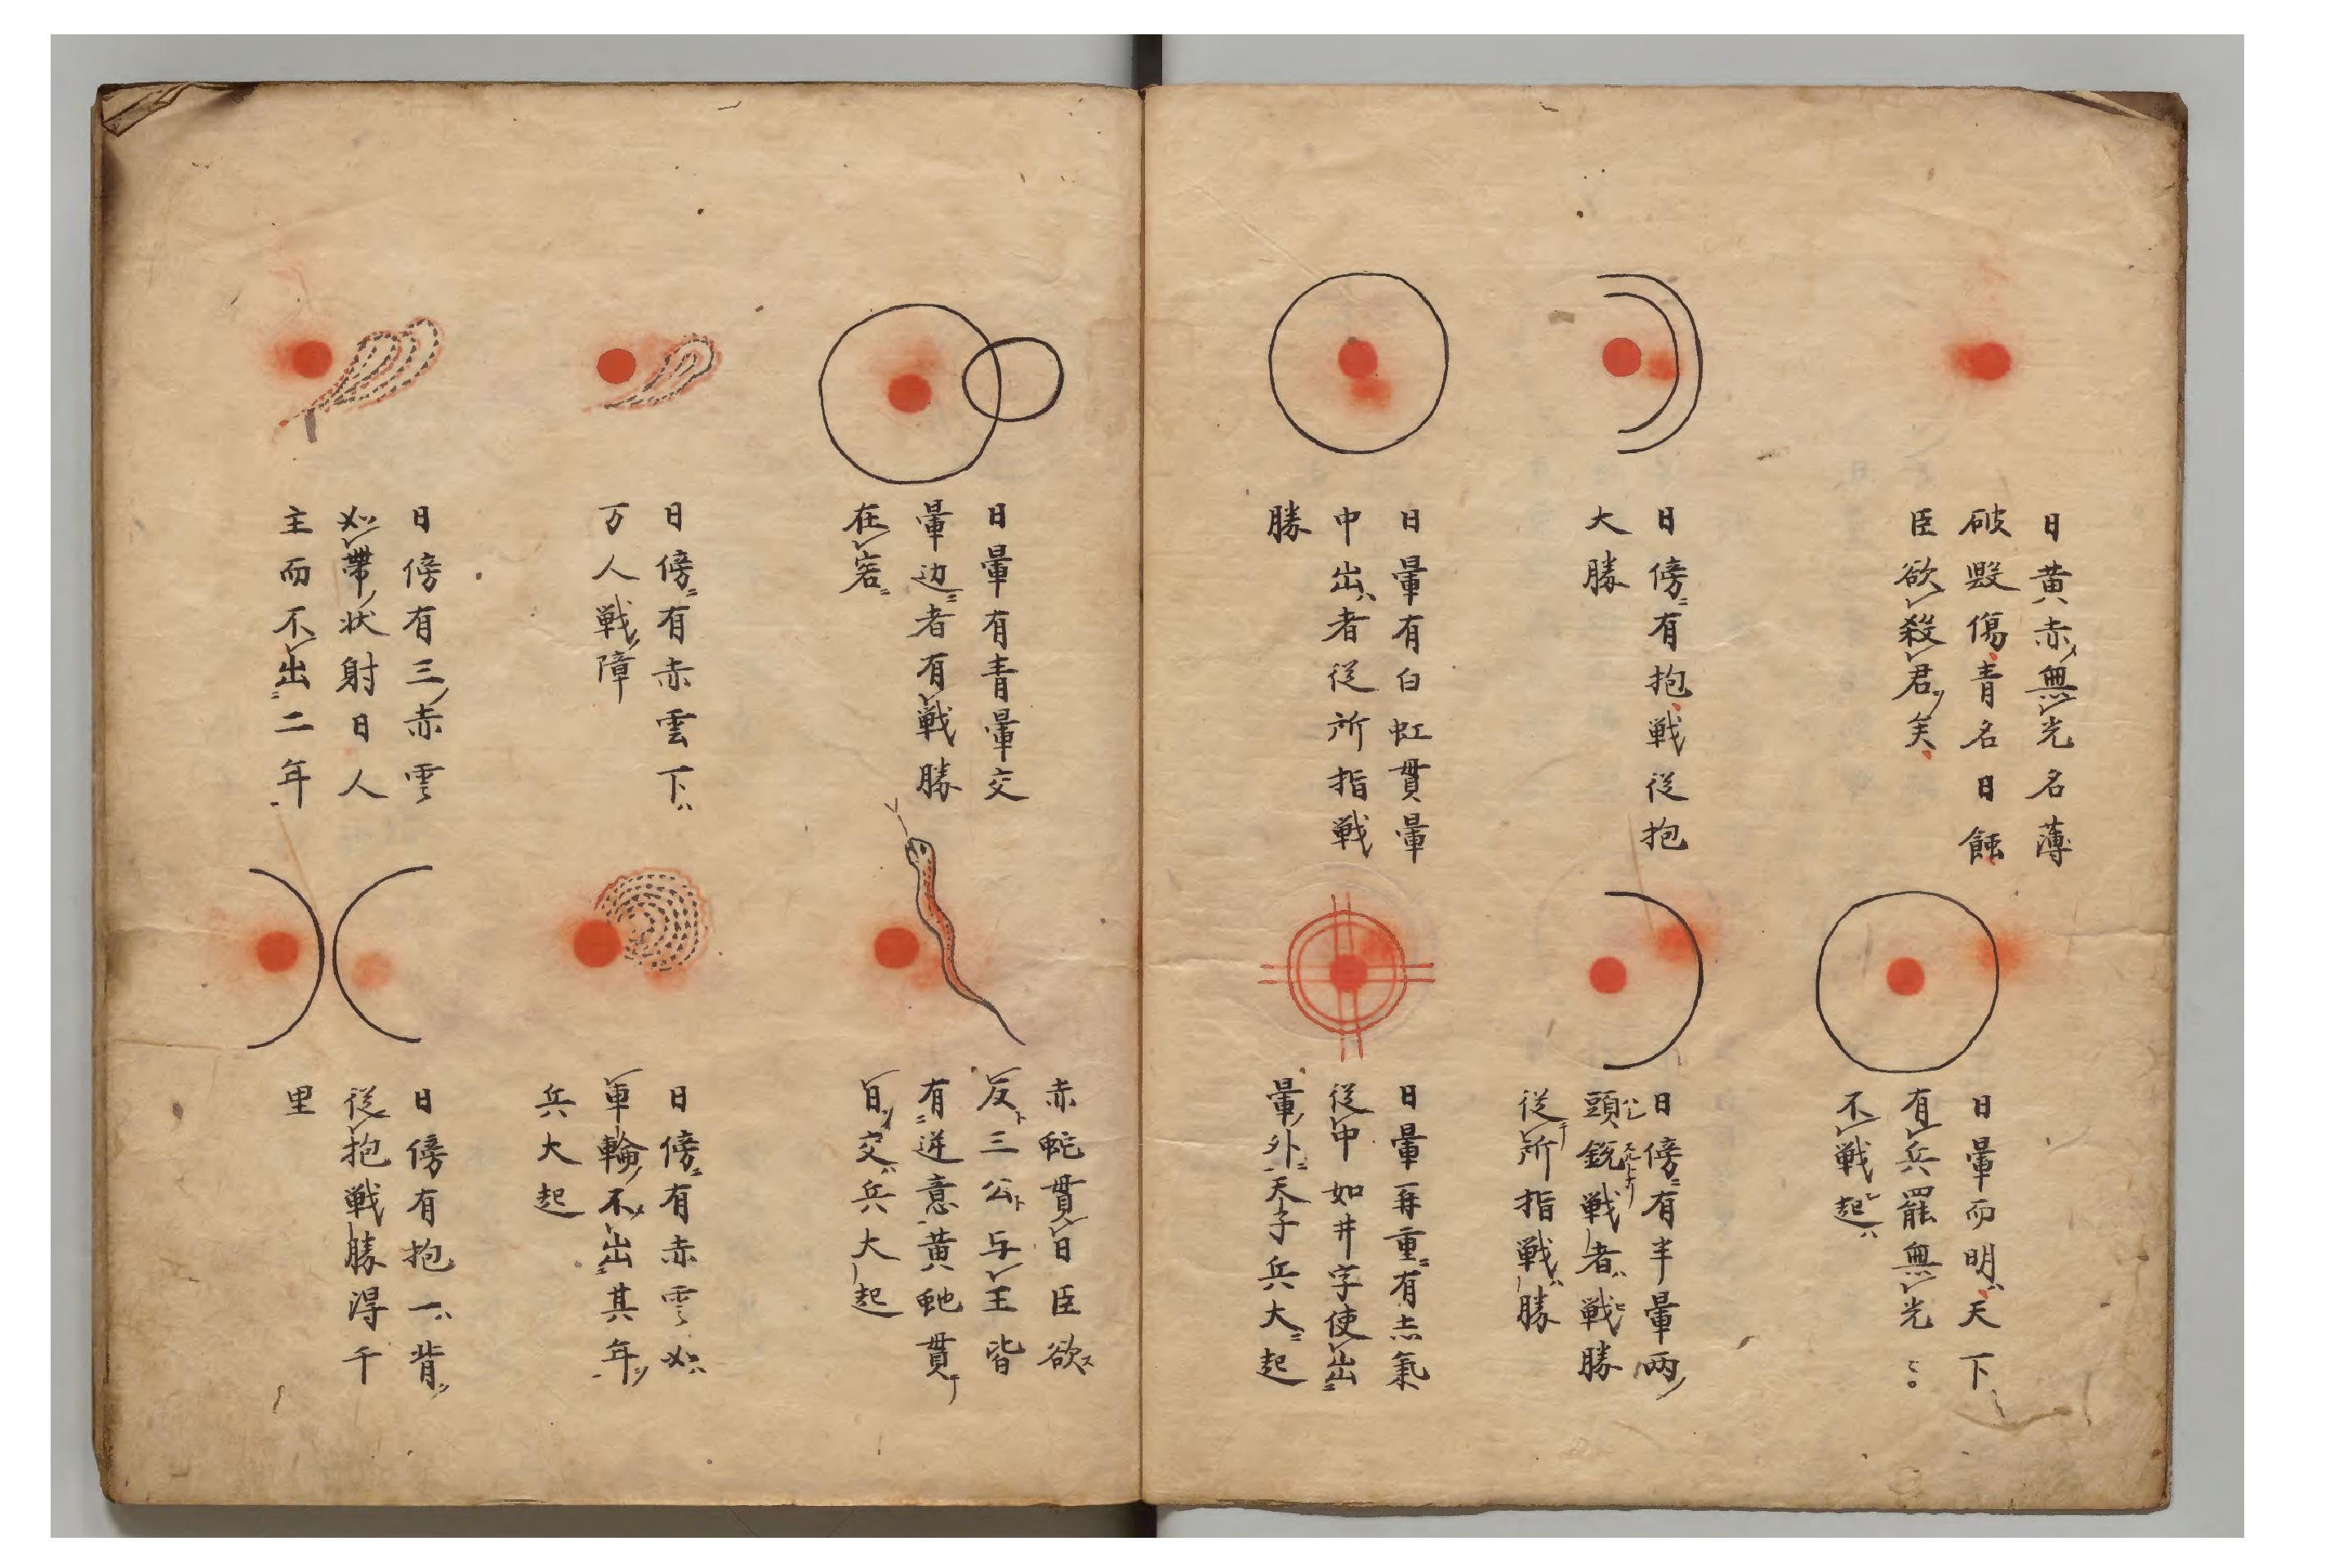 日黄赤無光名薄
破毀傷青名日蝕
臣欲殺君矣
日傍有抱戦従抱
大勝
日暈有白虹貫暈
中出者従所指戦
勝
日暈而明天下
有兵罷無光〻
不戦起
日傍有半暈両
頭鋭戦者戦勝
従所指戦勝
日暈再重有赤氣
従中如井字使出
暈外天子兵大起
日暈有青暈交
暈边者有戦勝
在
日傍有赤雲下
万人戦障
日傍有三赤雲
如帶状射日人
主而不出二年
赤蛇貫日臣欲
反三公与王皆
有逆意黄虵貫
日交兵大起
日傍有赤雲如
車輪不出其年
兵大起
日傍有抱一背
従抱戦勝得千
里